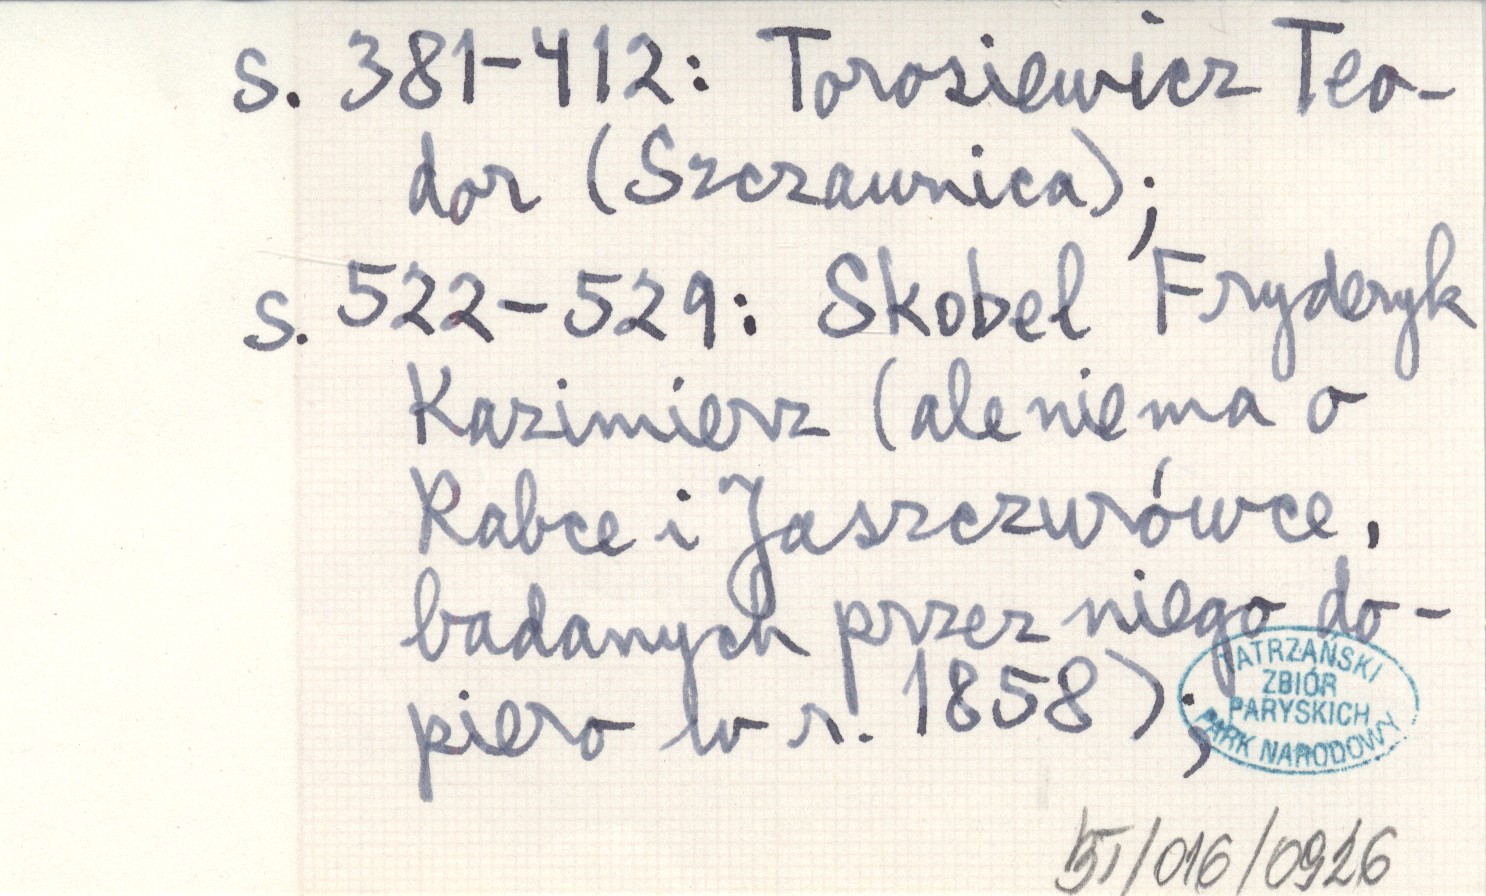 s. 381-412: Torosiewicz Teo-
dor (Szczawnica);
s. 522-529: Skobel Fryderyk
Kazimierz (ale nie ma o
Rabce i Jaszczurówce,
badanych przez niego do-
piero w r. 1858);
TATRZAŃSKI
ZBIÓR
PARYSKICH
PARK NARODOWY
/016/0926